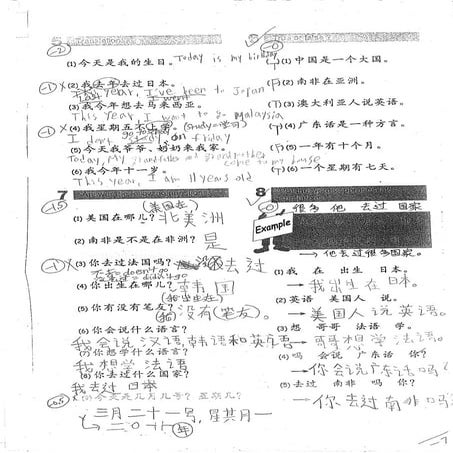 5 Translation
-2
(1)今天是我的生日。Today is my birthday
-1 X (2)我去年去过日本。
Last year, I've been to Japan
I went
(3)我今年想去马来西亚。
This Year, I want to go malaysia
-1 X (4)我星期五不上学。(study=学习)
go to school
I don't study on friday
(5)今天我爷爷、奶奶来我家。
Today, My grandfather and grandmother come to my house
(6)我今年十一岁。
This year, I am 11 years old
6 True or False?
-0
(T)(1)中国是一个大国。
(F)(2)南非在亚洲。
(T)(3)澳大利亚人说英语。
(T)(4)广东话是一种方言。
(F)(5)一年有十个月。
(T)(6)一个星期有七天。
7
-1.5
(美国在)
(1)美国在哪儿?北美洲
(2)南非是不是在非洲?是
-1 X (3)你去过法国吗?没去过
不去=don't go
没去过=didn't go
(4)你出生在哪儿?韩国
(我出生在)
(5)你有没有笔友?(我)没有(笔友)。
(6)你会说什么语言?
我会说汉语,韩语和英语
(7)你想学什么语言?
我想学法语
(8)你去过什么国家?
我去过日本
-0.5 X (9)今天是几月几号?星期几?
三月二十一号,星其月一
二〇一一年
8
-0
Example
很多 他 去过 国家
→ 他去过很多国家。
(1)我 在 出生 日本。
→ 我出生在日本。
(2)英语 美国人 说。
→ 美国人说英语。
(3)想 哥哥 法语 学。
→ 哥哥想学法语。
(4)吗 会说 广东话 你?
→ 你会说广东话吗?
(5)去过 南非 吗 你?
→ 你去过南非吗?